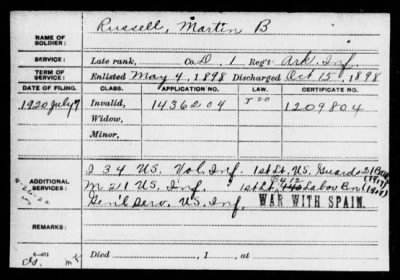 Russell, Martin B
NAME OF SOLDIER:
SERVICE: Late rank, Co. D, 1 Reg't Ark. Inf.
TERM OF SERVICE: Enlisted May 4, 1898 Discharged Oct 15, 1898
DATE OF FILING. CLASS. APPLICATION NO. LAW. CERTIFICATE NO.
1920 July 7 Invalid, 1436204 J 20 1209804
Widow,
Minor,
I 34 U.S. Vol. Inf. 1st Lt. U.S. Guards 21 (1917)
ADDITIONAL SERVICES: M 21 U.S. Inf. 1st Lt. 412 Labor Bn (1918)
Gen'l Serv. U.S. Inf. WAR WITH SPAIN.
REMARKS:
Died , 1 , at